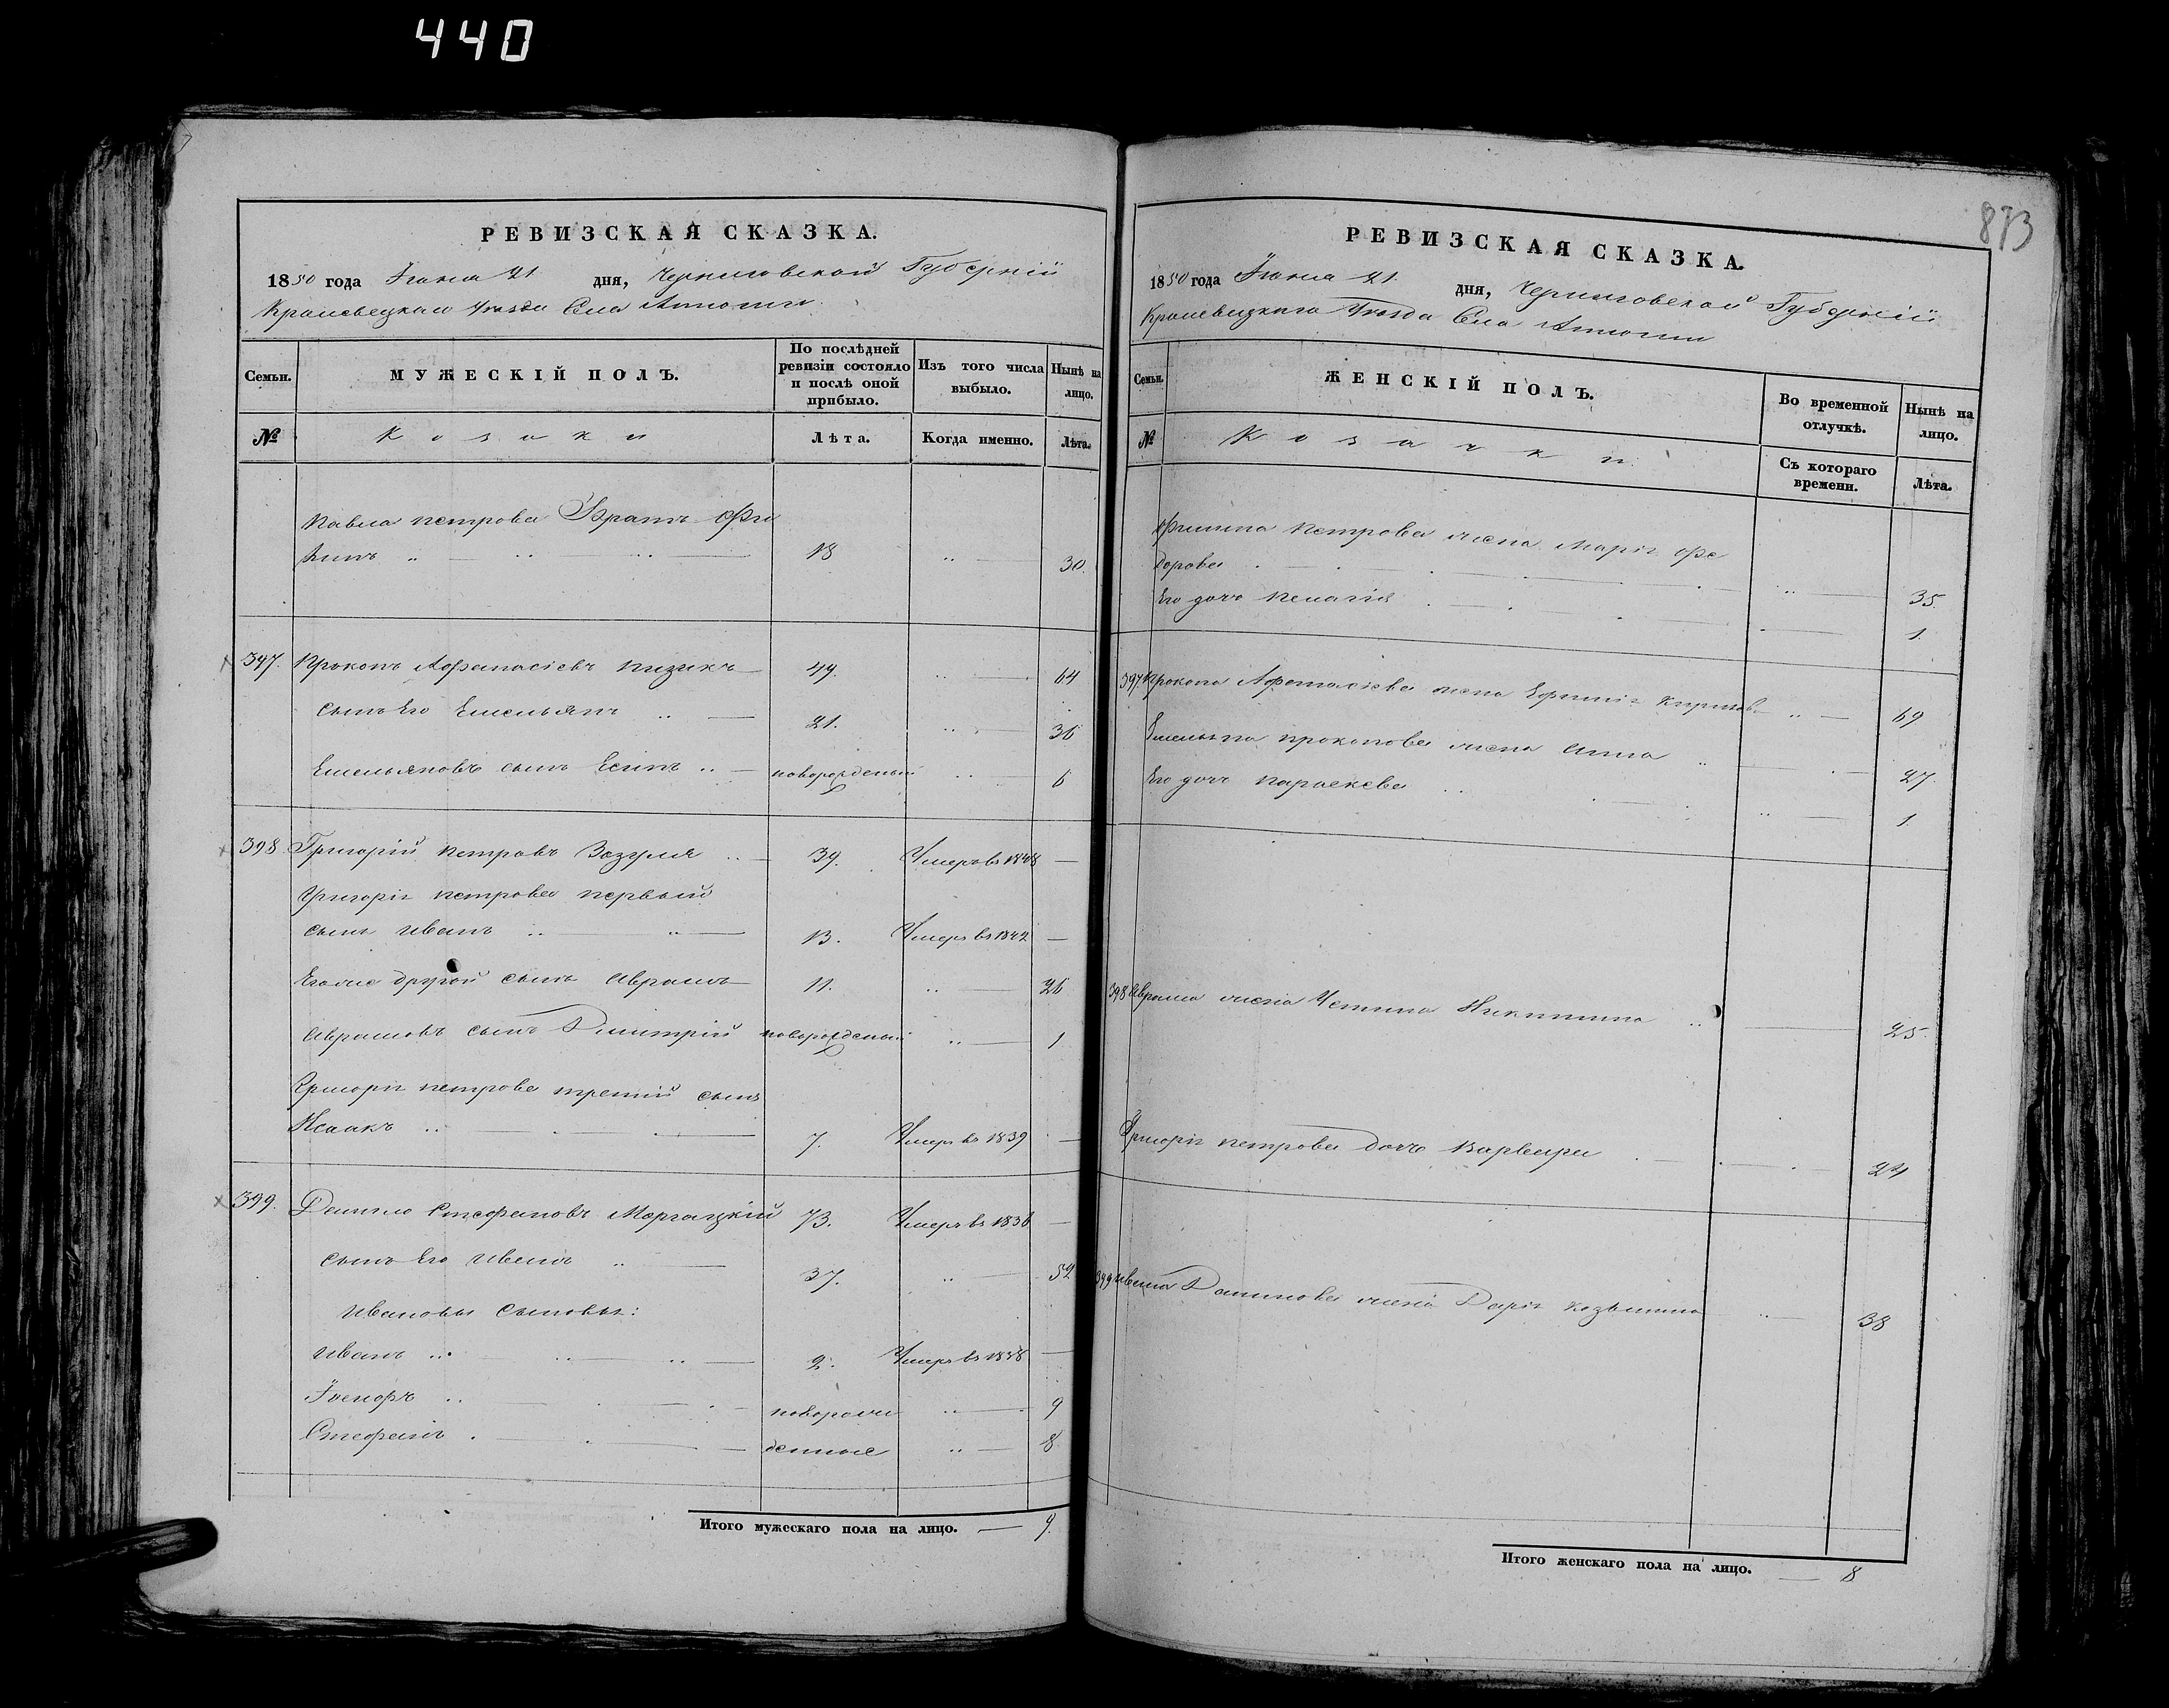 440
873
РЕВИЗСКАЯ СКАЗКА.
1850 года Іюня 21 дня, Черниговской Губерніи
Кролевецкаго Уѣзда Села
Семьи.
МУЖЕСКІЙ ПОЛЪ.
По послѣдней ревизіи состояло и послѣ оной прибыло.
Изъ того числа выбыло.
Нынѣ на лицо.
№
Козаки
Лѣта.
Когда именно.
Лѣта.
Павла Петрова Братъ Фи
липъ 18 30.
397. Прокопъ Афанасіевъ 49. 64
сынъ Его Емельянъ 21. 36
Емельяновъ сынъ Есипъ новорожденый 6
398 Григорій Петровъ Зозуля 39. Умеръ въ 1848 —
Григорія Петрова первый
сынъ Иванъ 13. Умеръ въ 1842 —
Его же другой сынъ Аврамъ 11. 26
Аврамовъ сынъ Дмитрій новорожденый 1
Григорія Петрова третій сынъ
Исаакъ 7. Умеръ въ 1839 —
399. Данило Стефановъ 73. Умеръ въ 1836 —
сынъ Его Иванъ 37. 52
Ивановы сыновья:
Иванъ 2. Умеръ въ 1838 —
новорож 9
Стефанъ денные 8
Итого мужескаго пола на лицо. — 9.
РЕВИЗСКАЯ СКАЗКА.
1850 года Іюня 21 дня, Черниговской Губерніи
Кролевецкаго Уѣзда Села
Семьи.
ЖЕНСКІЙ ПОЛЪ.
Во временной отлучкѣ.
Нынѣ на лицо.
№
Козачки
Съ котораго времени.
Лѣта.
Филипа Петрова жена Марія Фе
дорова 35.
Его дочь Пелагія 1.
397. Прокопа Афанасіева жена 69
Емельяна Прокопова жена Анна 27.
Его дочь Параскева 1.
398 Аврама жена Устина Никитина 25.
Григорія Петрова дочь Варвара 24
399 Ивана Данилова жена Дарія Козьмина 38
Итого женскаго пола на лицо. — 8